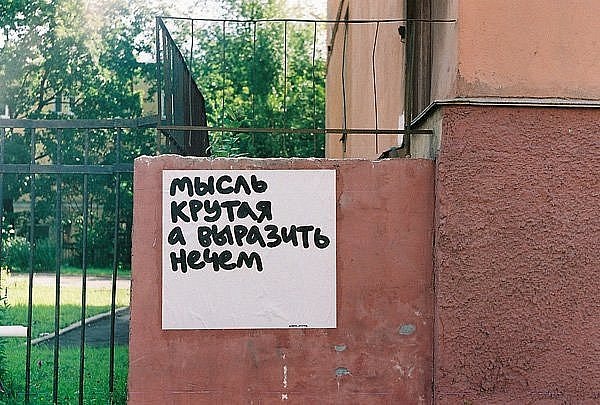 мысль
крутая
а выразить
нечем